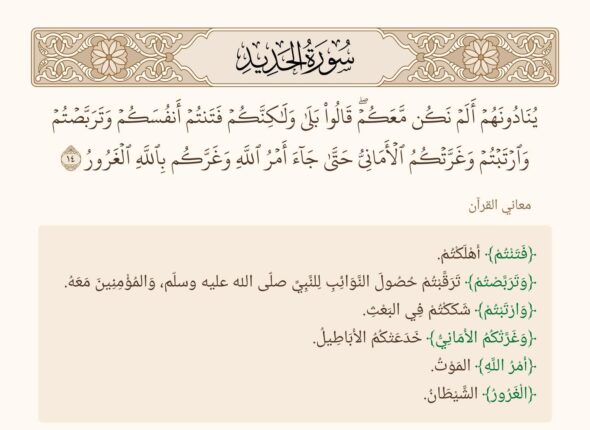 سُورَةُ الحَدِيدِ
يُنَادُونَهُمۡ أَلَمۡ نَكُن مَّعَكُمۡۖ قَالُواْ بَلَىٰ وَلَٰكِنَّكُمۡ فَتَنتُمۡ أَنفُسَكُمۡ وَتَرَبَّصۡتُمۡ
وَٱرۡتَبۡتُمۡ وَغَرَّتۡكُمُ ٱلۡأَمَانِيُّ حَتَّىٰ جَآءَ أَمۡرُ ٱللَّهِ وَغَرَّكُم بِٱللَّهِ ٱلۡغَرُورُ ١٤
معاني القرآن
﴿فَتَنْتُمْ﴾ أهْلَكْتُمْ.
﴿وَتَرَبَّصْتُمْ﴾ تَرَقَّبْتُمْ حُصُولَ النَّوَائِبِ لِلنَّبِيِّ صلّى الله عليه وسلّم، وَالمُؤْمِنِينَ مَعَهُ.
﴿وَارْتَبْتُمْ﴾ شَكَكْتُمْ فِي البَعْثِ.
﴿وَغَرَّتْكُمُ الأَمَانِيُّ﴾ خَدَعَتْكُمُ الأبَاطِيلُ.
﴿أمْرُ اللَّهِ﴾ المَوْتُ.
﴿الْغَرُورُ﴾ الشَّيْطَانُ.